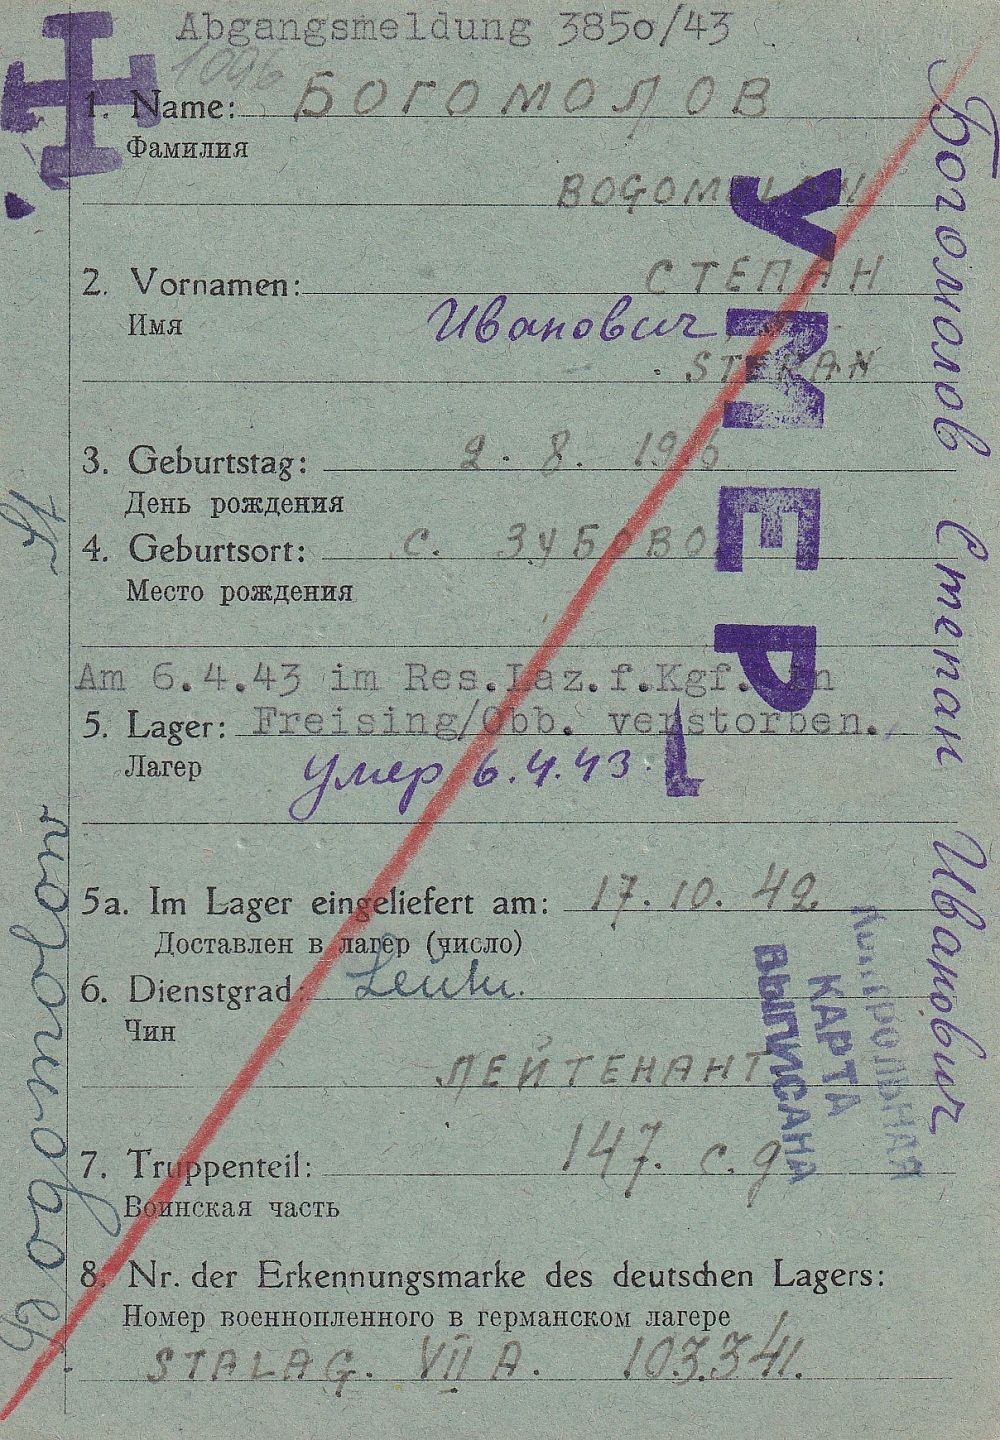 Abgangsmeldung 385o/43
1096
1. Name: БОГОМОЛОВ
Фамилия
BOGOMOLOW
2. Vornamen: СТЕПАН
Имя Иванович
STEPAN
3. Geburtstag: 2. 8. 1916
День рождения
4. Geburtsort: с. ЗУБОВО.
Место рождения
Am 6.4.43 im Res.Laz.f.Kgf. in
5. Lager: Freising/Obb. verstorben.
Лагер умер 6.4.43.
5a. Im Lager eingeliefert am: 17. 10. 42
Доставлен в лагер (число)
6. Dienstgrad: Leutn.
Чин
ЛЕЙТЕНАНТ
7. Truppenteil: 147. с. д
Воинская часть
8. Nr. der Erkennungsmarke des deutschen Lagers:
Номер военнопленного в германском лагере
STALAG. VII A. 103341.
УМЕР
Богомолов Степан Иванович
Контрольная
КАРТА
ВЫПИСАНА